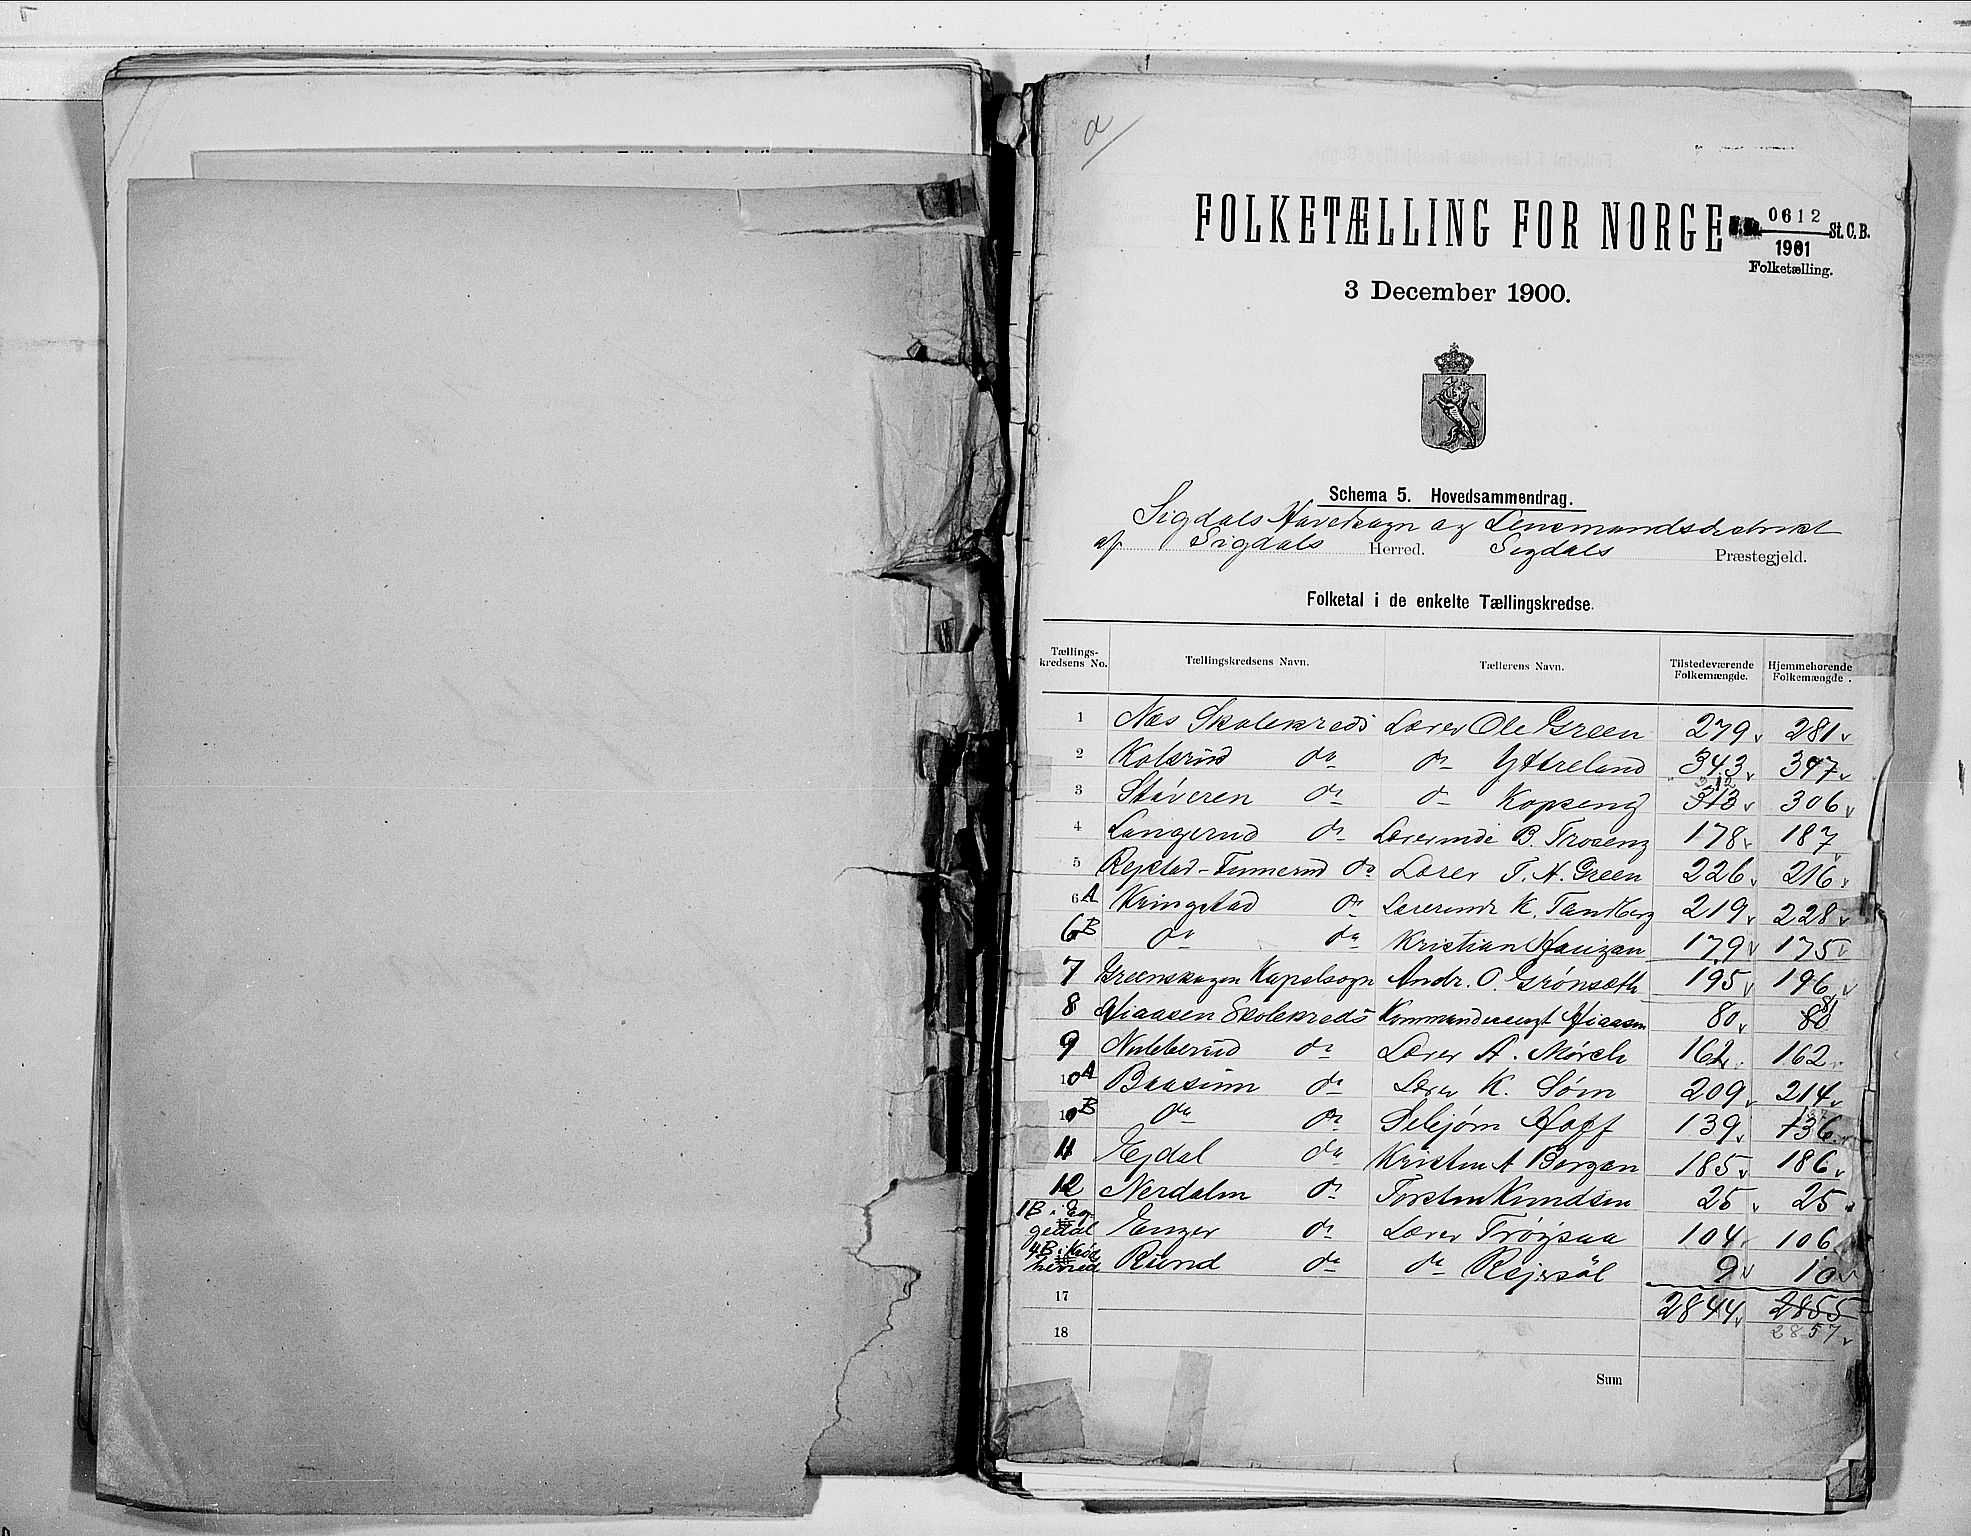 a
FOLKETÆLLING FOR NORGE
0612
1901
St. C. B.
Folketælling.
3 December 1900.
Schema 5. Hovedsammendrag.
Sigdals Hovedsogn og Lensmandsdistrikt
af Sigdals Herred. Sigdals Præstegjeld.
Folketal i de enkelte Tællingskredse.
Tællings-kredsens No. Tællingskredsens Navn. Tællerens Navn. Tilstedeværende Folkemængde. Hjemmehørende Folkemængde.
1 Nes Skolekreds Lærer Ole Green 279 281
2 Kolsrud do do Yttreland 343 347
3 Staveren do do Kopseng 313 312 306
4 Langerud do Lærerinde B. Froseng 178 187
5 Rejstad-Tunnerud do Lærer T. A. Green 226 216
6A Kringstad do Lærerinde K. Tandberg 219 228
6B do do Kristian Haugan 179 175
7 Greenskogen Kapelsogn Andr. O. Grønsæth 195 196
8 Hiaasen Skolekreds Kommandersergt Hiaasen 80 80 81
9 Nubberud do Lærer A. Mørch 162 162
10A Baasum do Lærer K. Sørn 209 214
10B do do Hoff 139 136 137
11 Ejdal do Kristen A Borgen 185 186
12 Nerdalm do Torsten Knudsen 25 25
1B i Eggedal Enger do Lærer Frøysaa 104 106
4B i Krødsherred Rund do do Rejersøl 9 10
17 2844 2855
18 2857
Sum